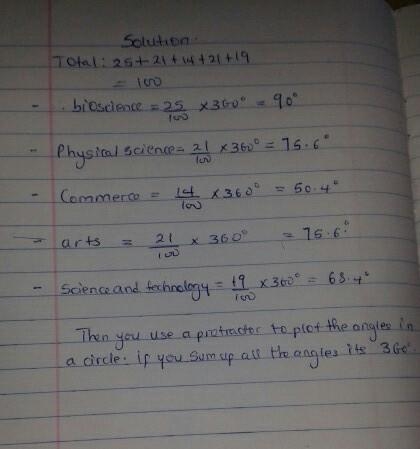 Solution.
Total: 25+21+14+21+19
= 100
- . bioscience = 25/100 × 360° = 90°
- Physical science = 21/100 × 360° = 75.6°
- Commerce = 14/100 × 360° = 50.4°
- arts = 21/100 × 360° = 75.6°
- Science and technology = 19/100 × 360° = 68.4°
Then you use a protractor to plot the angles in
a circle. if you sum up all the angles its 360°.